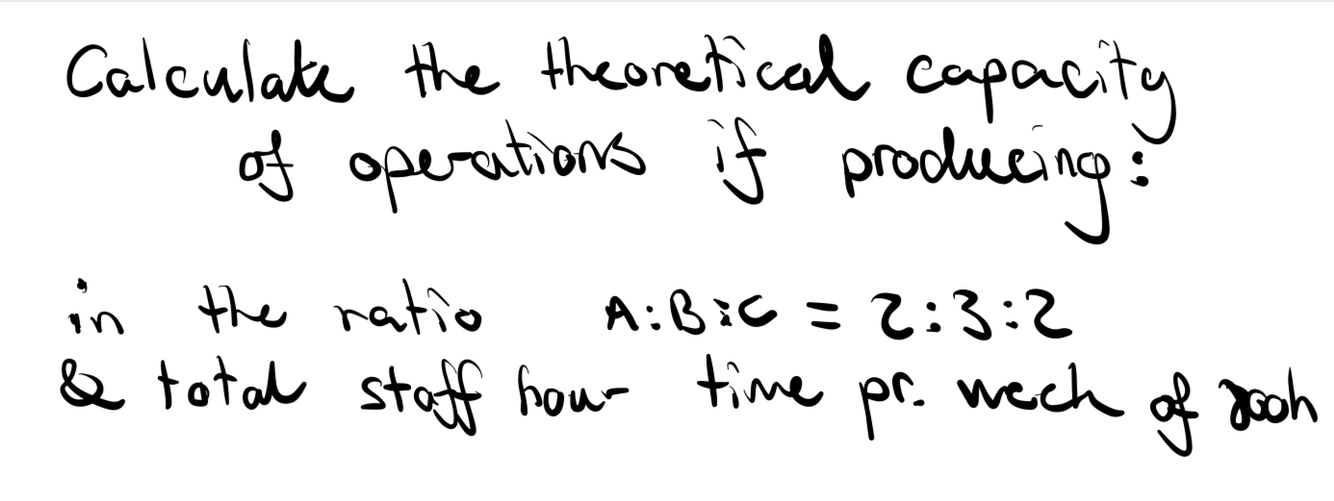 Calculate the theoretical capacity
of operations if producing:
in the ratio A:B:C = 2:3:2
& total staff hour time pr. week of